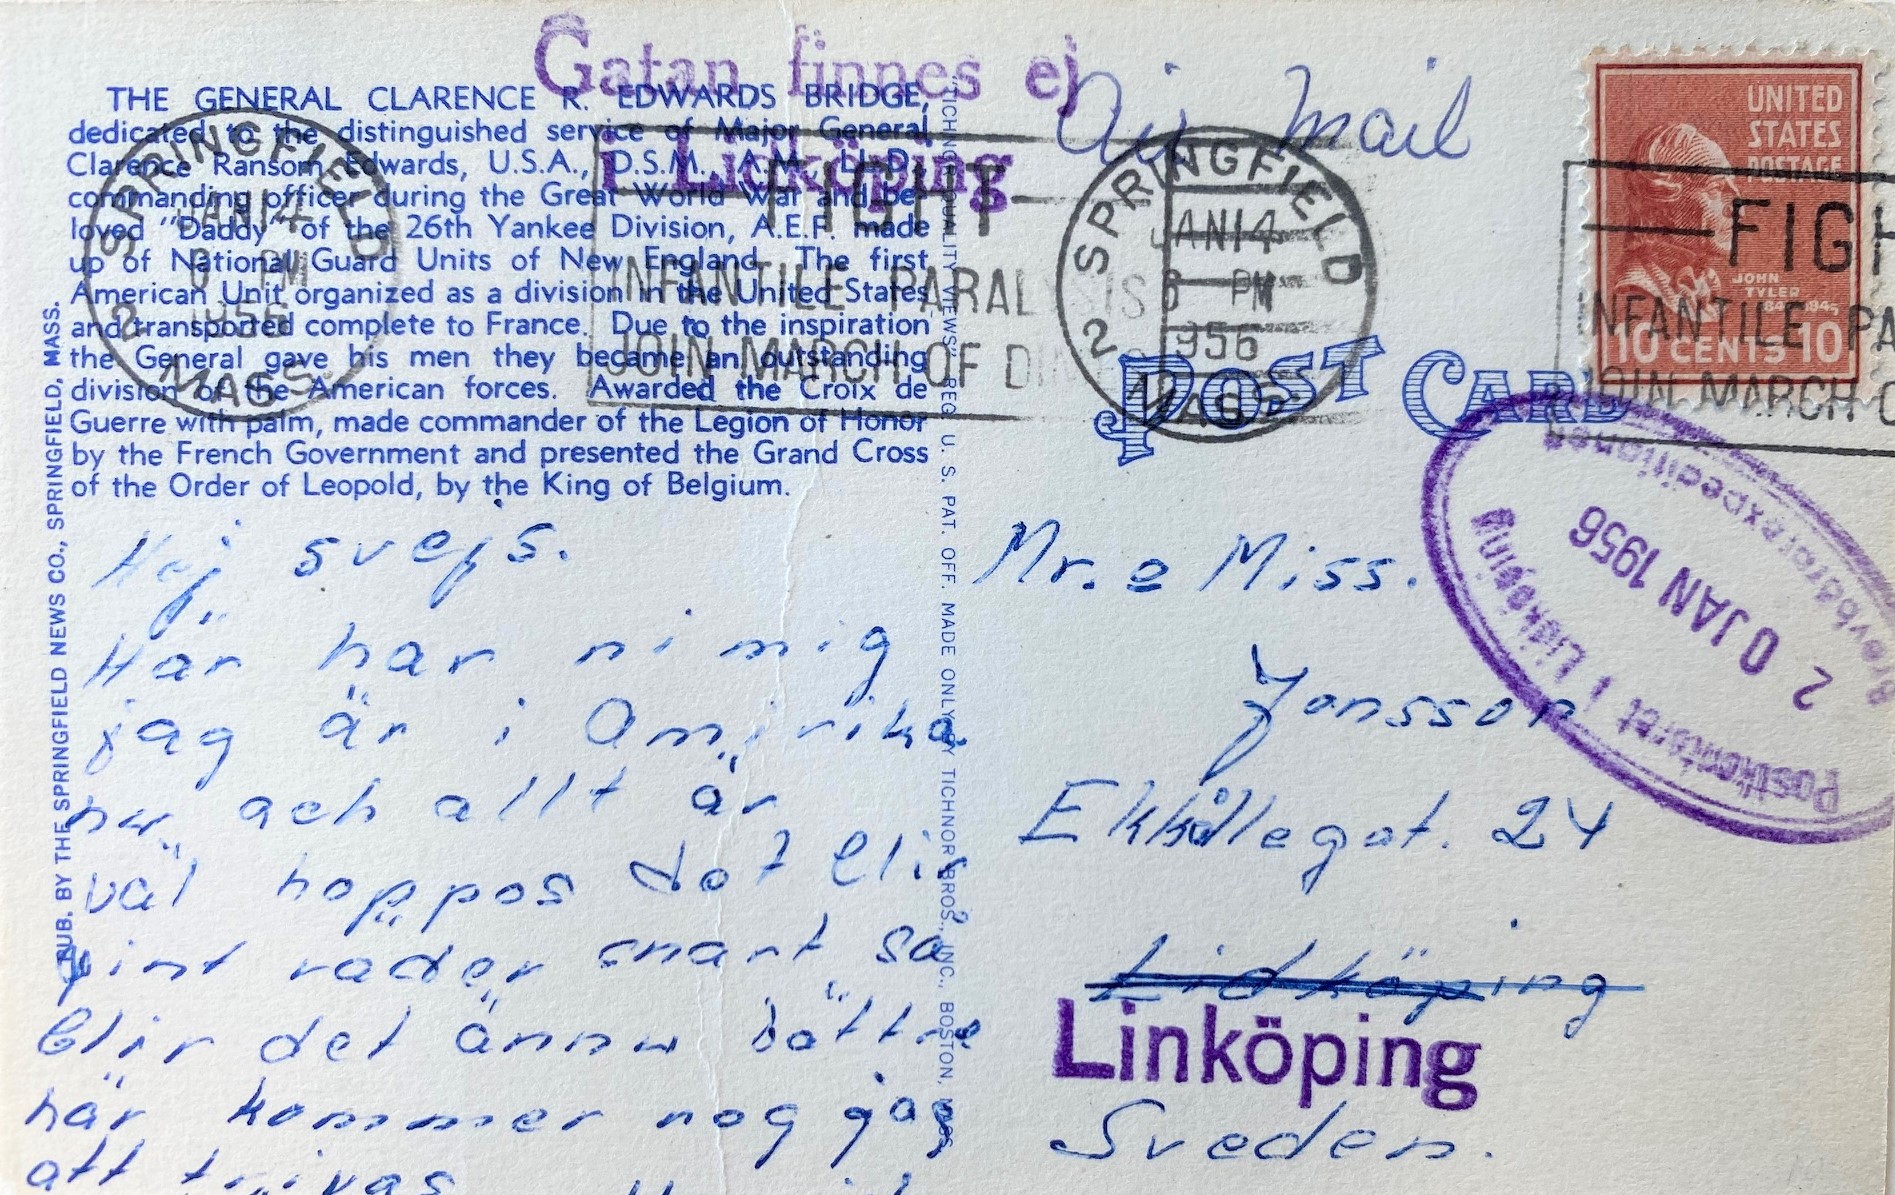 Gatan finnes ej
i Lidköping
Air Mail
THE GENERAL CLARENCE R. EDWARDS BRIDGE,
dedicated to the distinguished service of Major General
Clarence Ransom Edwards, U.S.A., D.S.M., A.M., LL.D.,
commanding officer during the Great World War and be-
loved "Daddy" of the 26th Yankee Division, A.E.F. made
up of National Guard Units of New England. The first
American Unit organized as a division in the United States
and transported complete to France. Due to the inspiration
the General gave his men they became an outstanding
division of the American forces. Awarded the Croix de
Guerre with palm, made commander of the Legion of Honor
by the French Government and presented the Grand Cross
of the Order of Leopold, by the King of Belgium.
SPRINGFIELD
JAN 14
PM
1956
2 MASS.
FIGHT
INFANTILE PARALYSIS
JOIN MARCH OF DIMES
SPRINGFIELD
JAN 14
6 PM
1956
2 MASS.
UNITED
STATES
POSTAGE
JOHN
TYLER
1841 1845
10 CENTS 10
FIGH
INFANTILE PA
JOIN MARCH O
POST CARD
PUB. BY THE SPRINGFIELD NEWS CO., SPRINGFIELD, MASS.
"TICHNOR QUALITY VIEWS" REG. U. S. PAT. OFF. MADE ONLY BY TICHNOR BROS., INC., BOSTON, MASS.
Postkontoret i Lidköping
20 JAN 1956
Brevbärarexpeditionen
Hej svejs.
Här har ni mig
jag är i Amirika
nu och allt är
väl hoppos dot blir
pint väder snart så
blir det ännu bättre
här kommer nog jag
att trivas
Mr. e Miss.
Jonsson
Ekkällegat. 24
Lidköping
Linköping
Sveden.